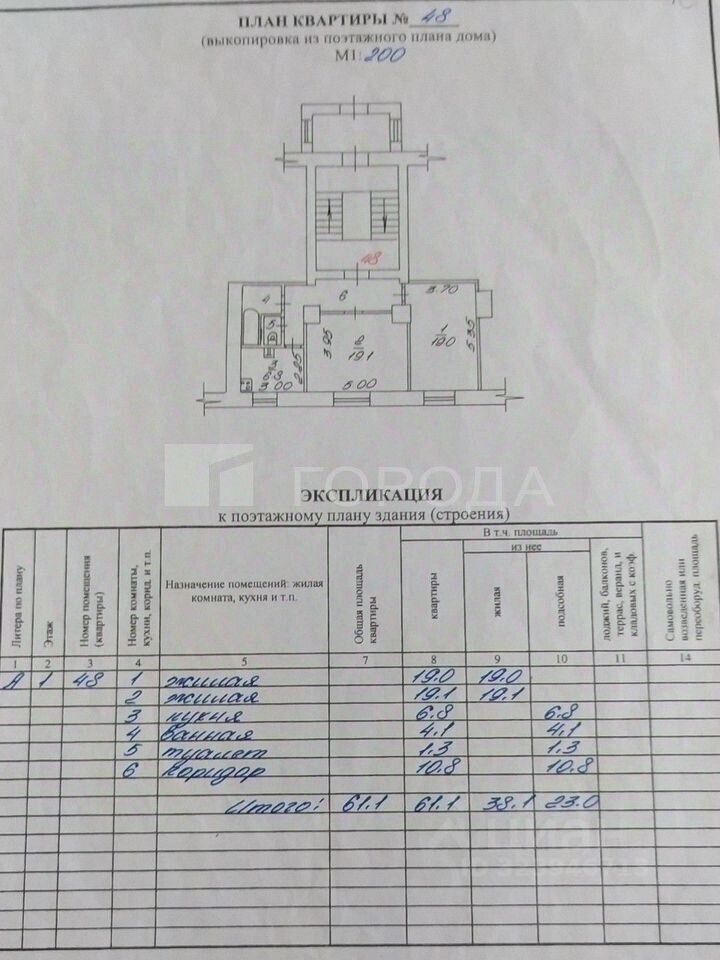 ПЛАН КВАРТИРЫ № 48
(выкопировка из поэтажного плана дома)
М1: 200
48
4
6
3.70
5
1
19.0
5.35
3.95
2
19.1
2.25
3.00
5.00
ГОРОДА
ЭКСПЛИКАЦИЯ
к поэтажному плану здания (строения)
Литера по плану
Этаж
Номер помещения (квартиры)
Номер комнаты, кухни, корид. и т.п.
Назначение помещений: жилая комната, кухня и т.п.
Общая площадь квартиры
В т.ч. площадь
из нее
квартиры
жилая
подсобная
лоджий, балконов, террас, веранд, и кладовых с коэф.
Самовольно возведенная или переоборуд. площадь
1 2 3 4 5 7 8 9 10 11 14
А 1 48 1 жилая 19.0 19.0
2 жилая 19.1 19.1
3 кухня 6.8 6.8
4 ванная 4.1 4.1
5 туалет 1.3 1.3
6 коридор 10.8 10.8
Итого: 61.1 61.1 38.1 23.0